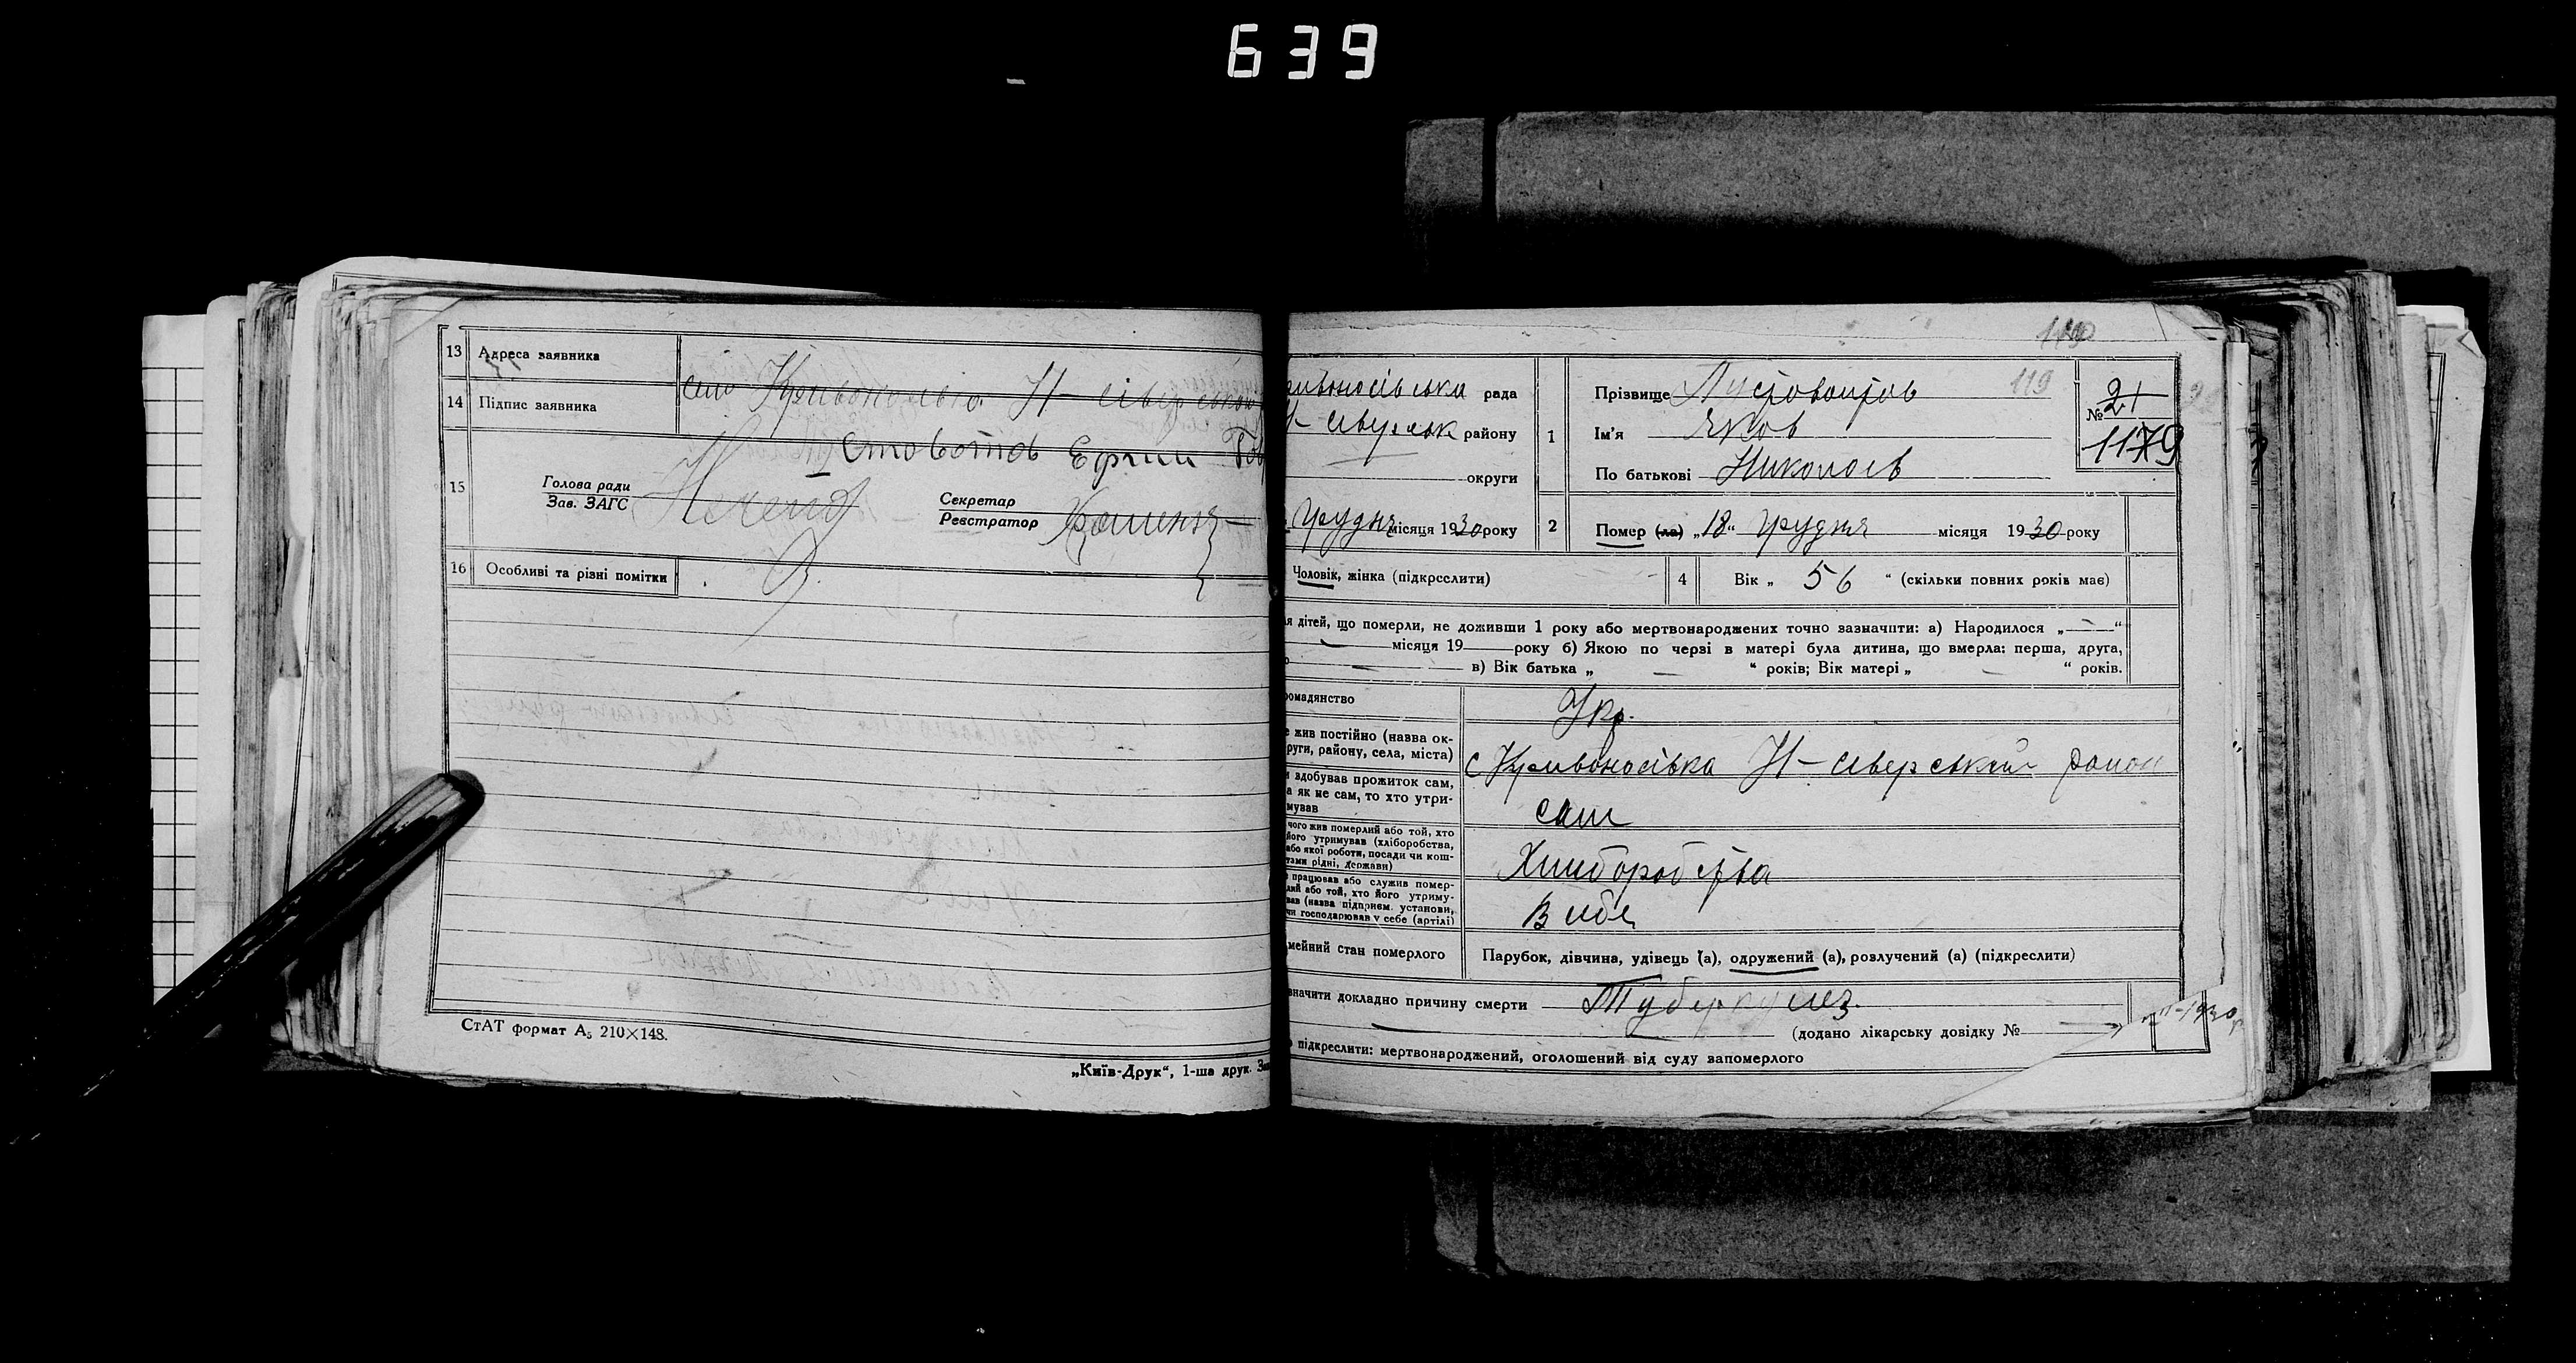 639
13 Адреса заявника
село
14 Підпис заявника
Пустовотов Ефим
15 Голова ради
Зав. ЗАГС
Секретар
Реєстратор
16 Особливі та різні помітки
СтАТ формат А5 210×148.
„Київ-Друк“, 1-ша друк.
119
ривоносівська рада
району
округи
Грудня місяця 1930 року
1 Прізвище Пустовойтов
Ім'я Яков
По батькові Николаев
№ 21
1179
2 Помер (ла) „18“ Грудня місяця 1930 року
Чоловік, жінка (підкреслити)
4 Вік „ 56 “ (скільки повних років має)
я дітей, що померли, не доживши 1 року або мертвонароджених точно зазначити: а) Народилося „ — “
місяця 19 року б) Якою по черзі в матері була дитина, що вмерла: перша, друга,
в) Вік батька „ — “ років; Вік матері „ — “ років.
ромадянство
Укр.
е жив постійно (назва ок-
руги, району, села, міста)
с Кривоносівка Н-сіверський район
и здобував прожиток сам,
а як не сам, то хто утри-
мував
сам
чого жив померлий або той, хто
його утримував (хліборобства,
або якої роботи, посади чи кош-
тами рідні, держави)
Хлиборобства
е працював або служив помер-
лий або той, хто його утриму-
вав (назва підприєм. установи,
чи господарював у себе (артілі)
В себе
мейний стан померлого
Парубок, дівчина, удівець (а), одружений (а), розлучений (а) (підкреслити)
значити докладно причину смерти Туберкулез.
(додано лікарську довідку №
підкреслити: мертвонароджений, оголошений від суду запомерлого